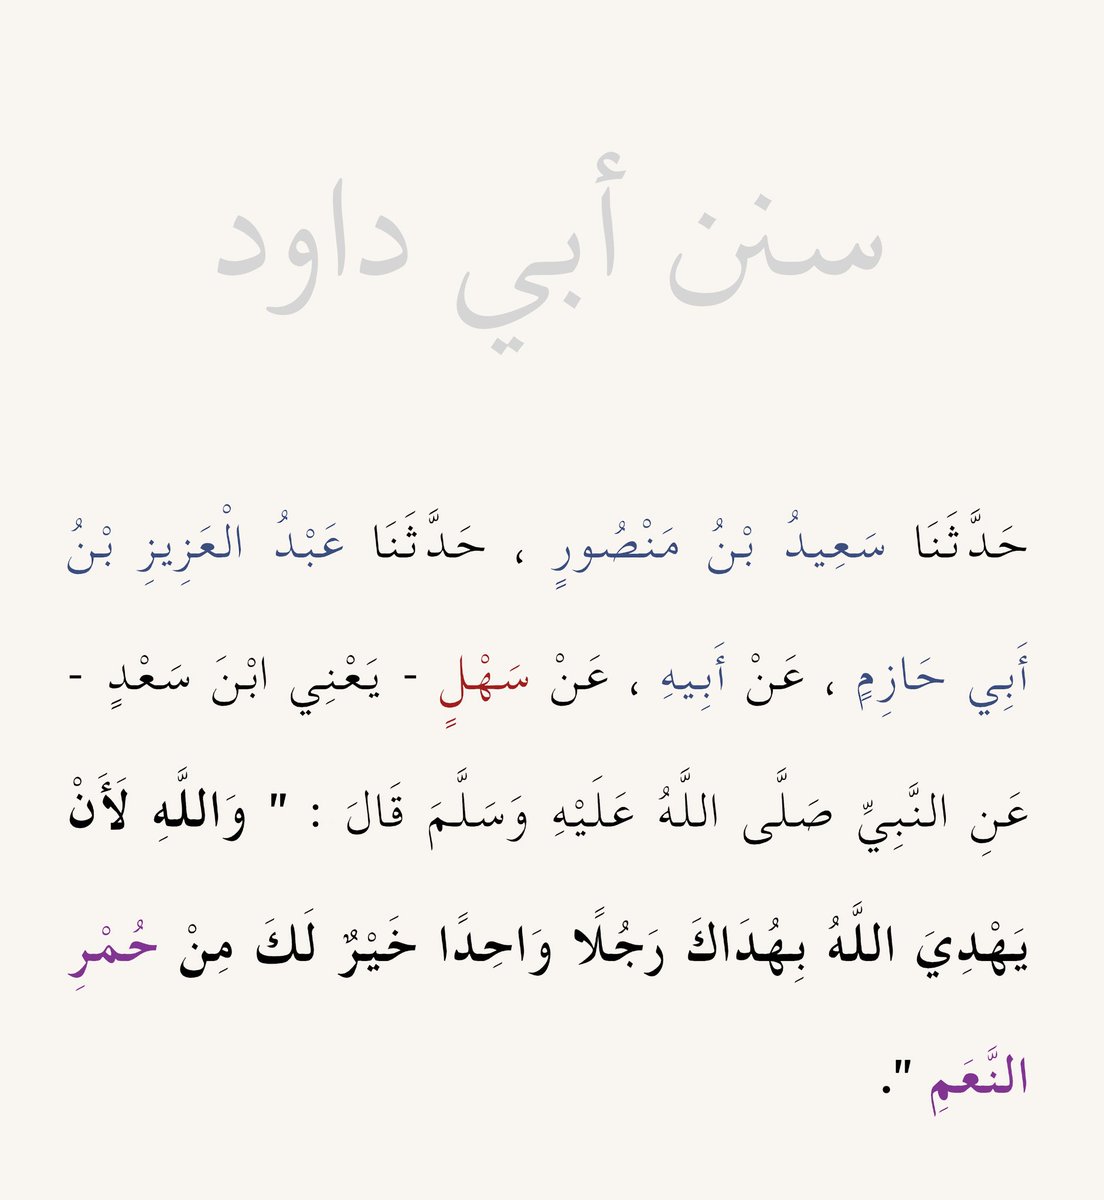 سنن أبي داود
حَدَّثَنَا سَعِيدُ بْنُ مَنْصُورٍ ، حَدَّثَنَا عَبْدُ الْعَزِيزِ بْنُ
أَبِي حَازِمٍ ، عَنْ أَبِيهِ ، عَنْ سَهْلٍ - يَعْنِي ابْنَ سَعْدٍ -
عَنِ النَّبِيِّ صَلَّى اللَّهُ عَلَيْهِ وَسَلَّمَ قَالَ : " وَاللَّهِ لَأَنْ
يَهْدِيَ اللَّهُ بِهُدَاكَ رَجُلًا وَاحِدًا خَيْرٌ لَكَ مِنْ حُمْرِ
النَّعَمِ ".